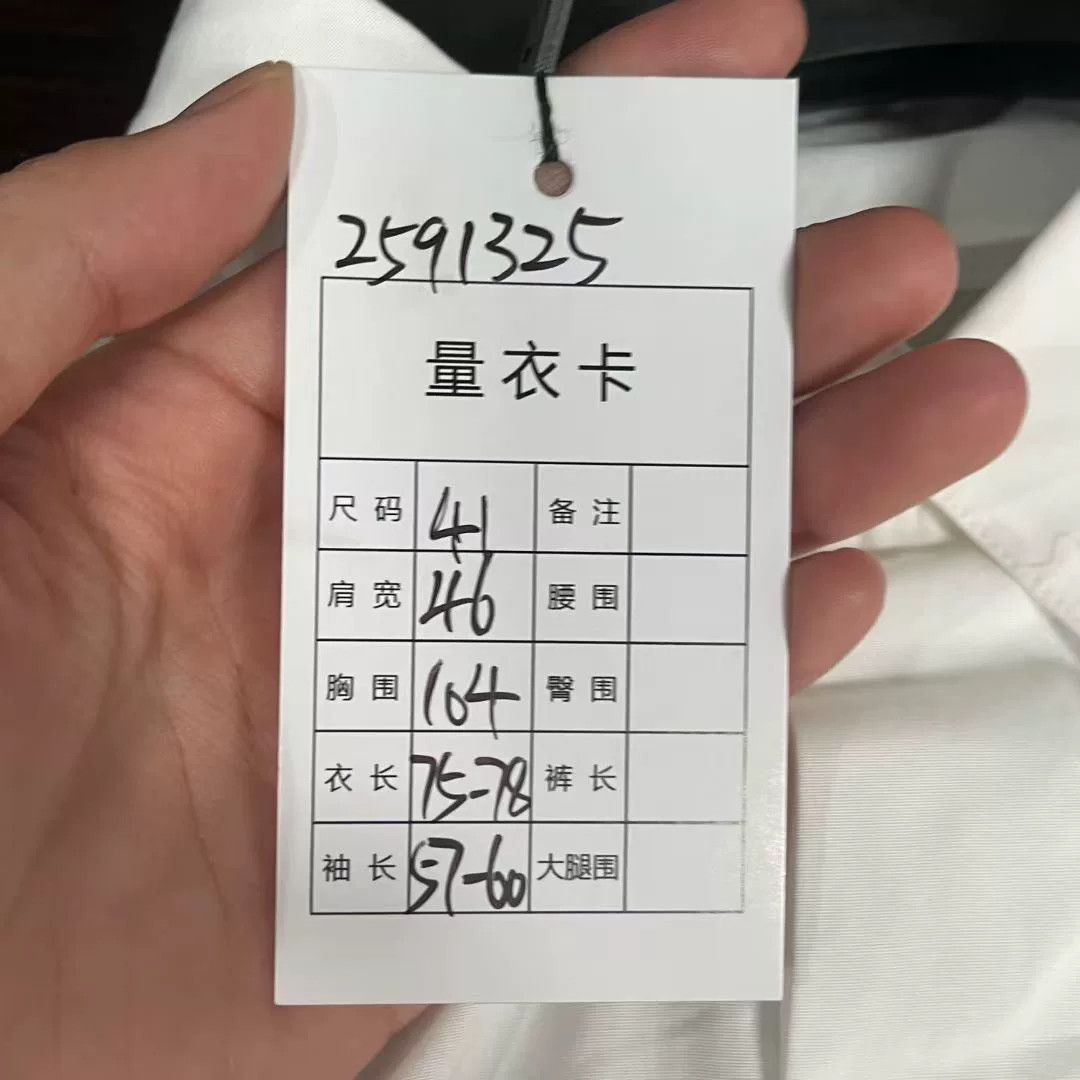 2591325
量衣卡
尺码 41 备注
肩宽 46 腰围
胸围 104 臀围
衣长 75-78 裤长
袖长 57-60 大腿围